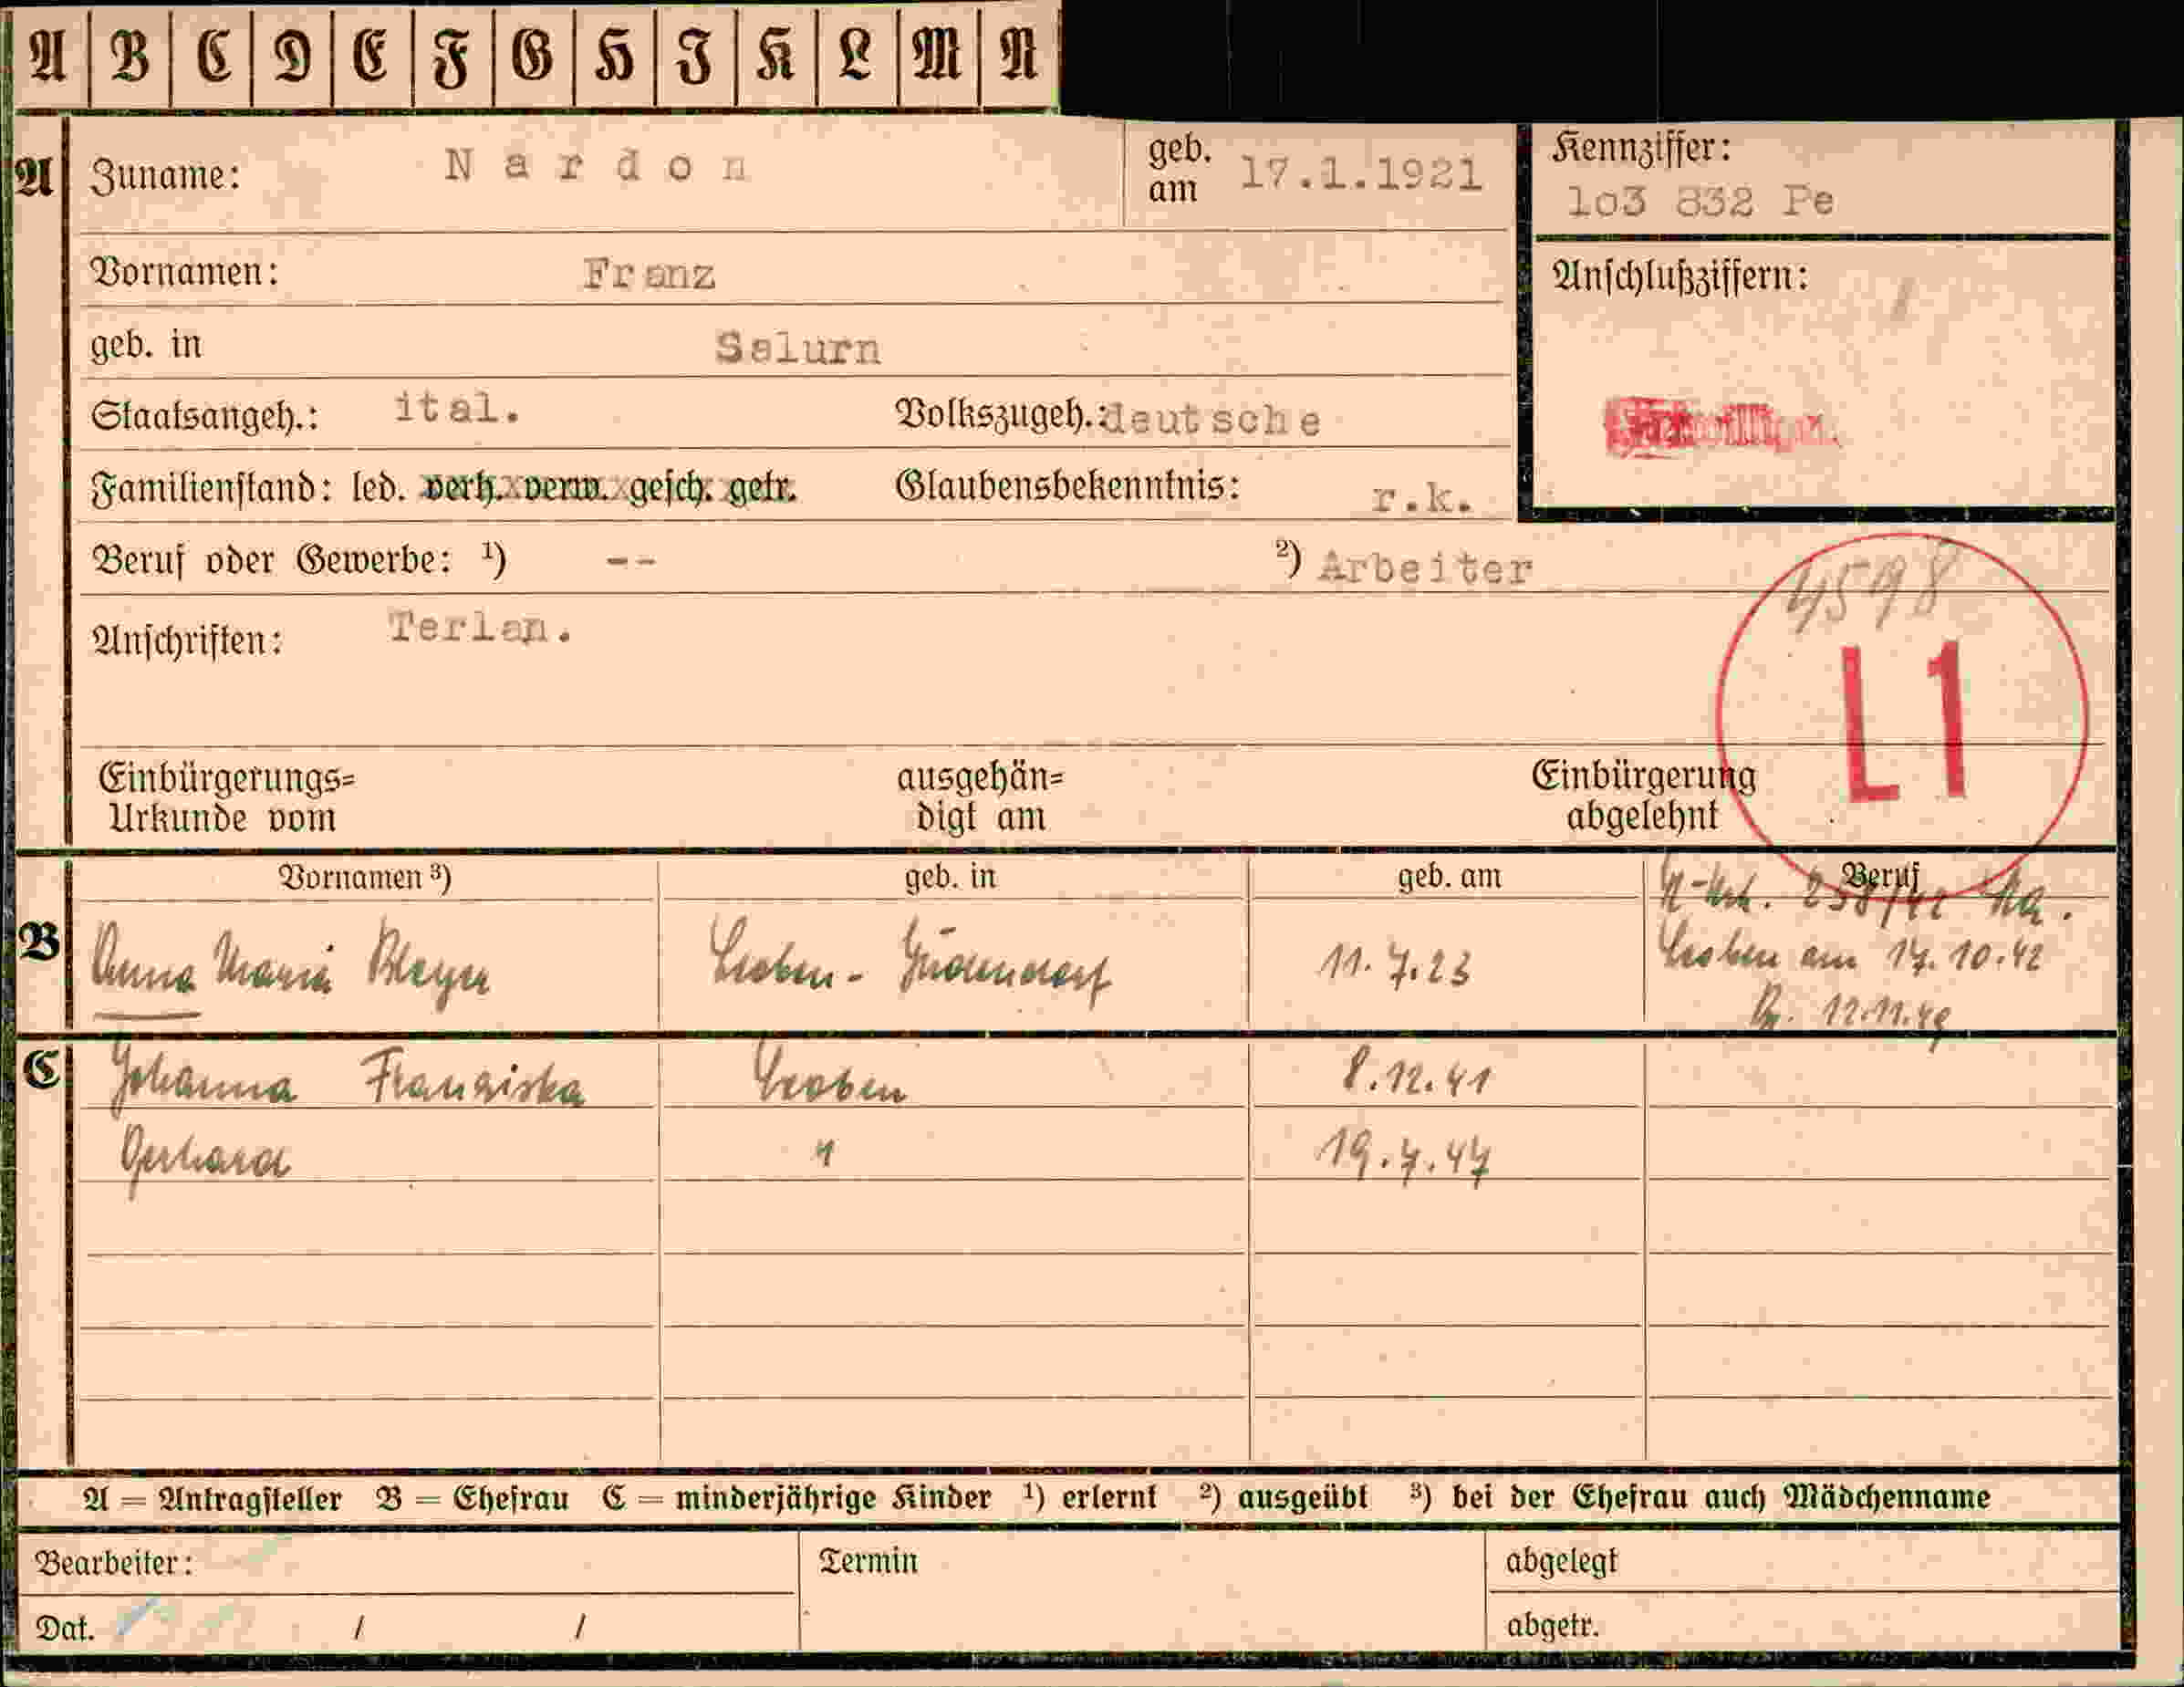 A B C D E F G H I K L M N
A Zuname: Nardon geb. am 17.1.1921 Kennziffer:
lo3 832 Pe
Vornamen: Franz Anschlußziffern:
geb. in Salurn
Staatsangeh.: ital. Volkszugeh.: deutsche
Familienstand: led. verh. verw. gesch. getr. Glaubensbekenntnis: r.k.
Beruf oder Gewerbe: ¹) -- ²) Arbeiter
4598
Anschriften: Terlan.
L1
Einbürgerungs= ausgehän= Einbürgerung
Urkunde vom digt am abgelehnt
Vornamen ³) geb. in geb. am Beruf
B Anna Maria Bleyer Leoben - Judendorf 11.7.23
Leoben am 17.10.42
12.11.49
C Johanna Franziska Leoben 8.12.41
Gerhard " 19.7.47
A = Antragsteller B = Ehefrau C = minderjährige Kinder ¹) erlernt ²) ausgeübt ³) bei der Ehefrau auch Mädchenname
Bearbeiter: Termin abgelegt
Dat. / / abgetr.